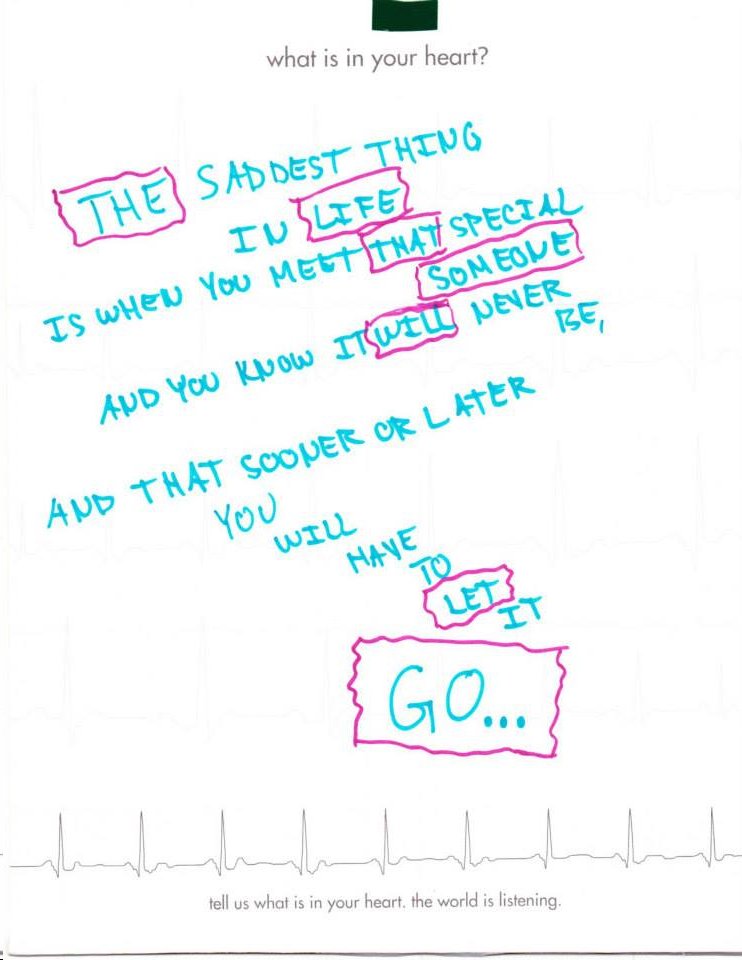 what is in your heart?
THE SADDEST THING
IN LIFE
IS WHEN YOU MEET THAT SPECIAL
SOMEONE
AND YOU KNOW IT WILL NEVER
BE,
AND THAT SOONER OR LATER
YOU
WILL
HAVE
TO
LET
IT
GO...
tell us what is in your heart. the world is listening.